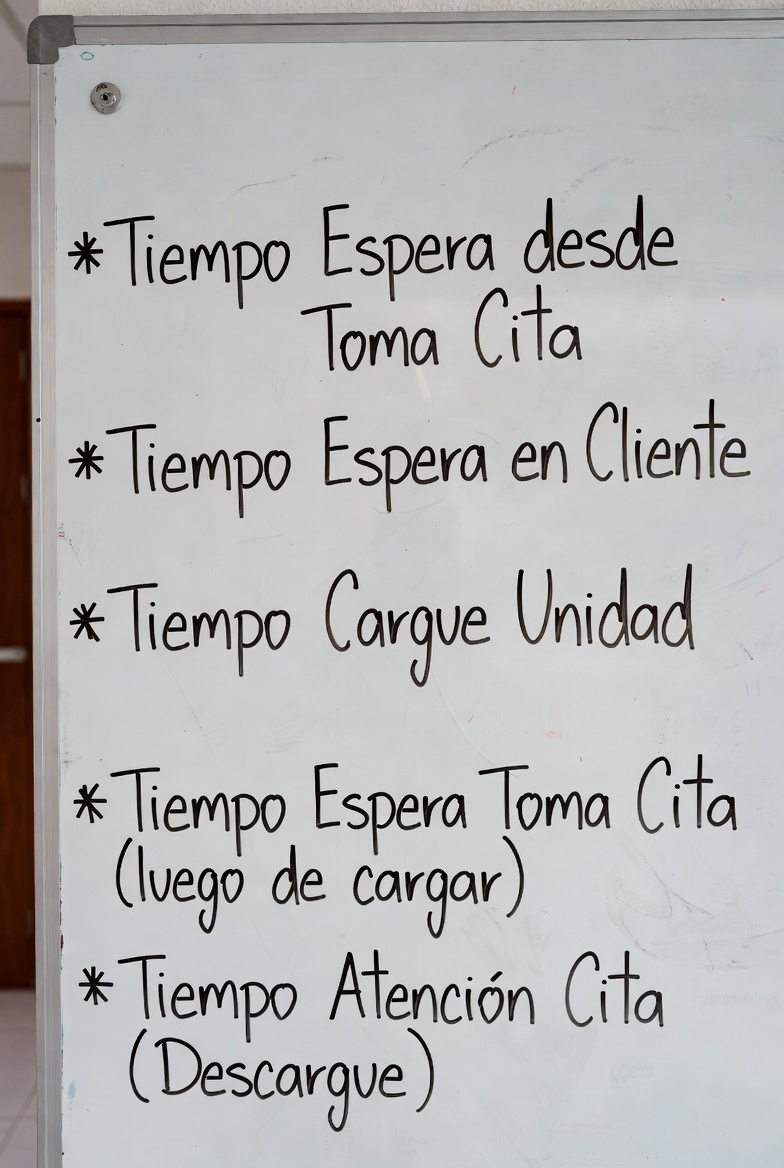 * Tiempo Espera desde
Toma Cita
* Tiempo Espera en Cliente
* Tiempo Cargue Unidad
* Tiempo Espera Toma Cita
(luego de cargar)
* Tiempo Atención Cita
(Descargue)